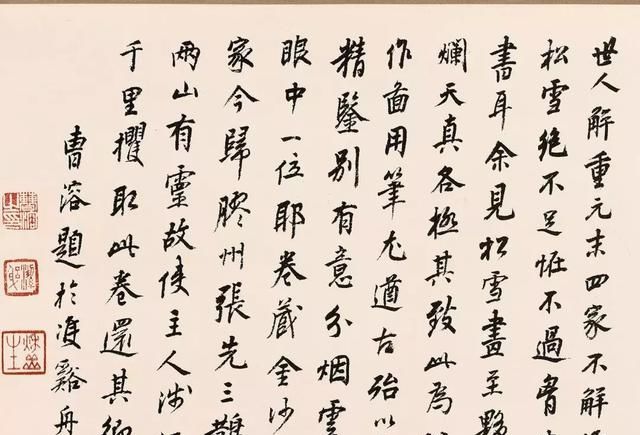 世人解重元末四家不解
松雪絶不足恠不過胷
書耳余見松雪畫至夥
爛天真各極其致此為
作畵用筆尤遒古殆以
精鑒別有意分烟雲
眼中一位耶卷藏金沙
家今歸膠州張先三
兩山有靈故使主人涉
千里攫取此卷還其鄉
曹溶題於雙谿舟